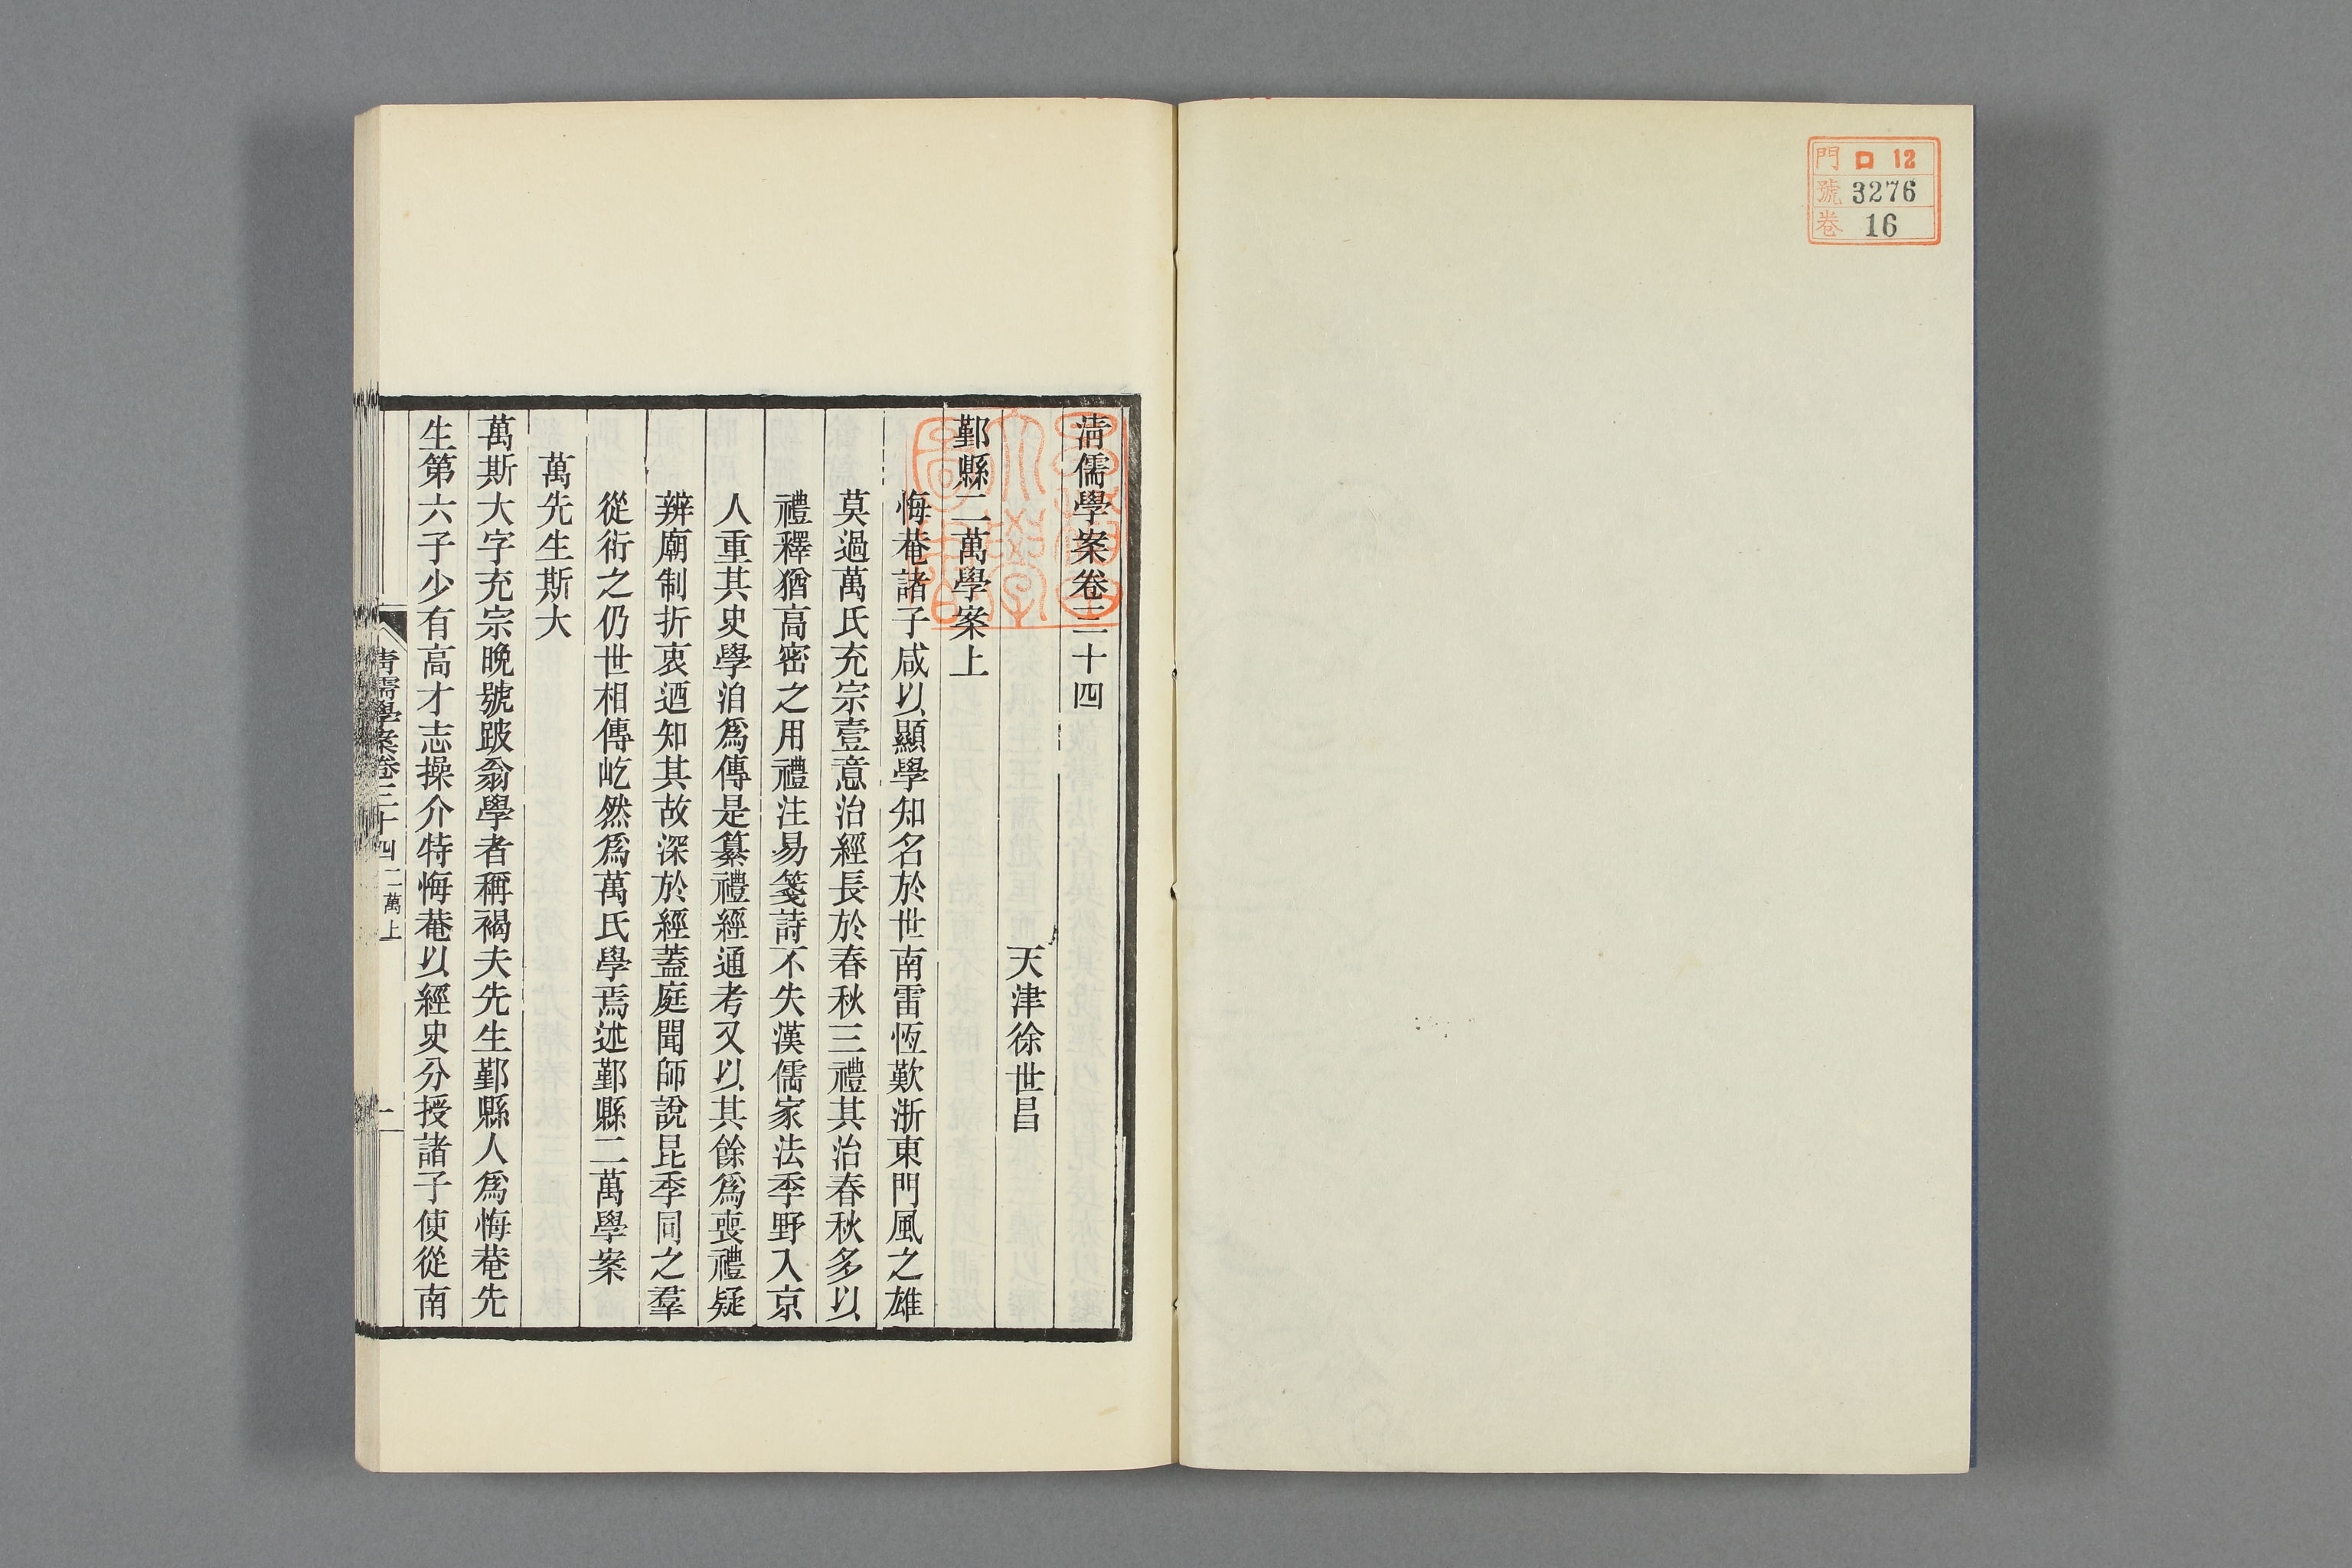 門 ロ 12
號 3276
卷 16
清儒學案卷三十四
天津徐世昌
鄞縣二萬學案上
悔菴諸子咸以顯學知名於世南雷恆歎浙東門風之雄
莫過萬氏充宗壹意治經長於春秋三禮其治春秋多以
禮釋猶高密之用禮注易箋詩不失漢儒家法季野入京
人重其史學洎爲傳是纂禮經通考又以其餘爲喪禮疑
辨廟制折衷迺知其故深於經蓋庭聞師說昆季同之羣
從術之仍世相傳屹然爲萬氏學焉述鄞縣二萬學案
萬先生斯大
萬斯大字充宗晚號跛翁學者稱褐夫先生鄞縣人爲悔菴先
生第六子少有高才志操介特悔菴以經史分授諸子使從南
清儒學案卷三十四 二萬上
一